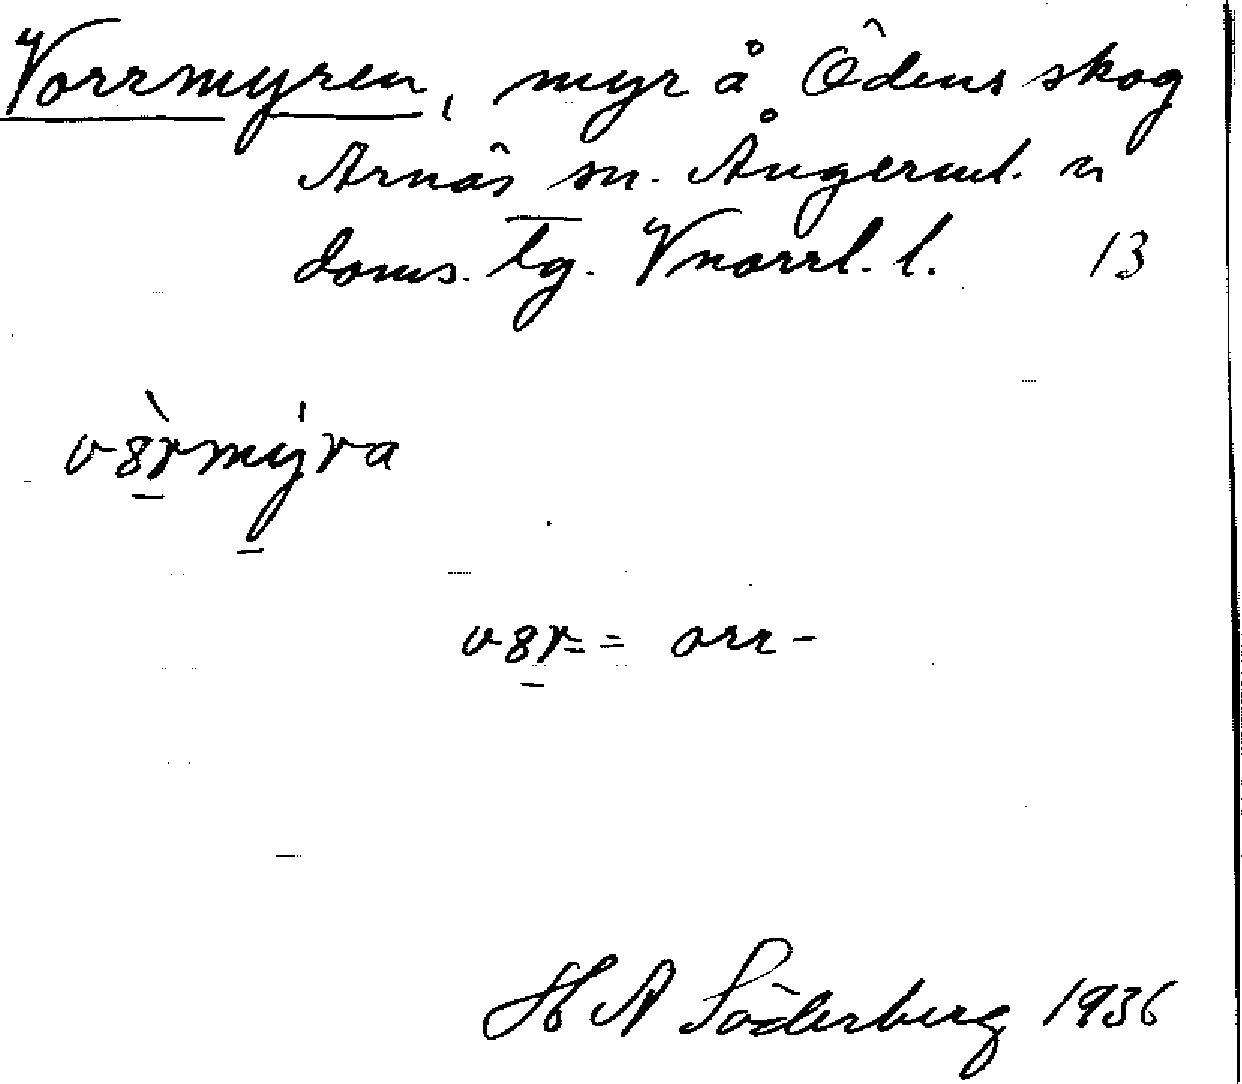 Vorrmyren, myr å Ödens skog
Arnäs sn. Ångerml. n
doms. tg. Vnorrl. l. 13
v8rmyra
v8r= = orr-
H A Söderberg 1936